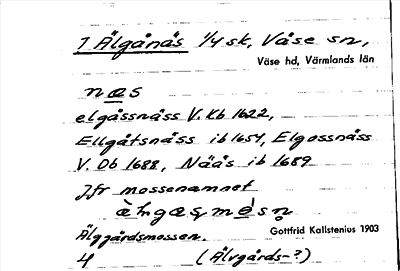 1 Älgånäs 1/4 sk, Väse sn,
Väse hd, Värmlands län
næs
elgåssnäss V. Kb 1622,
Ellgåtsnäss ib 1654, Elgossnäss
V. Db 1688, Nääs ib 1689
Jfr mossenamnet
Älggårdsmossen.
Gottfrid Kallstenius 1903
4 (Älvgårds-?)